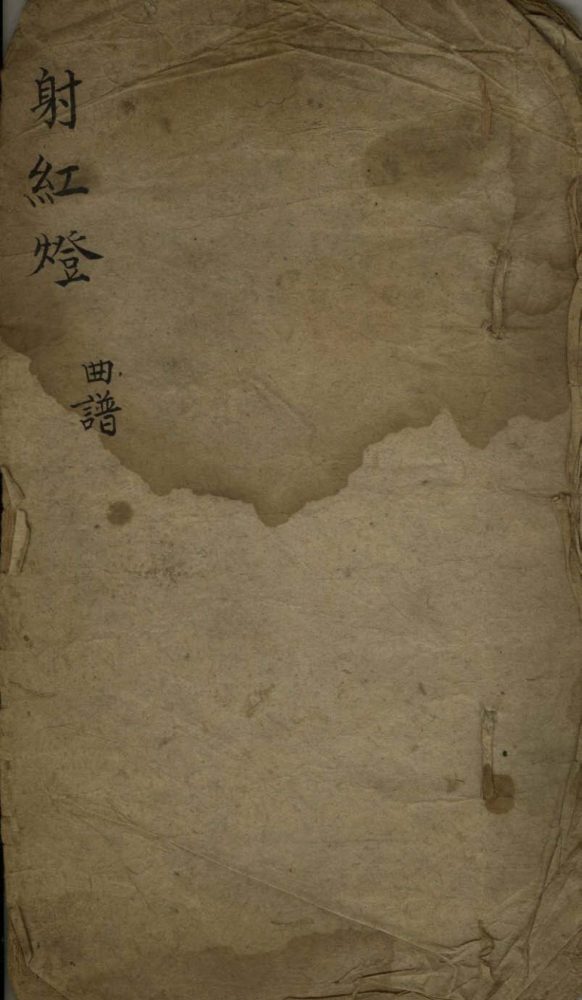 射紅燈
曲譜